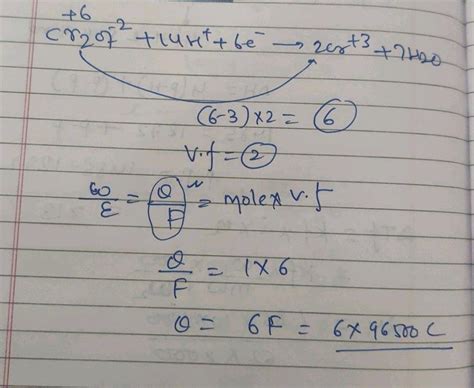 +6
Cr2O7^-2 + 14H^+ + 6e^- → 2Cr^+3 + 7H2O
(6-3)×2 = 6
V.f = 2
ω/E = Q/F = mole × V.f
Q/F = 1 × 6
Q = 6F = 6×96500C